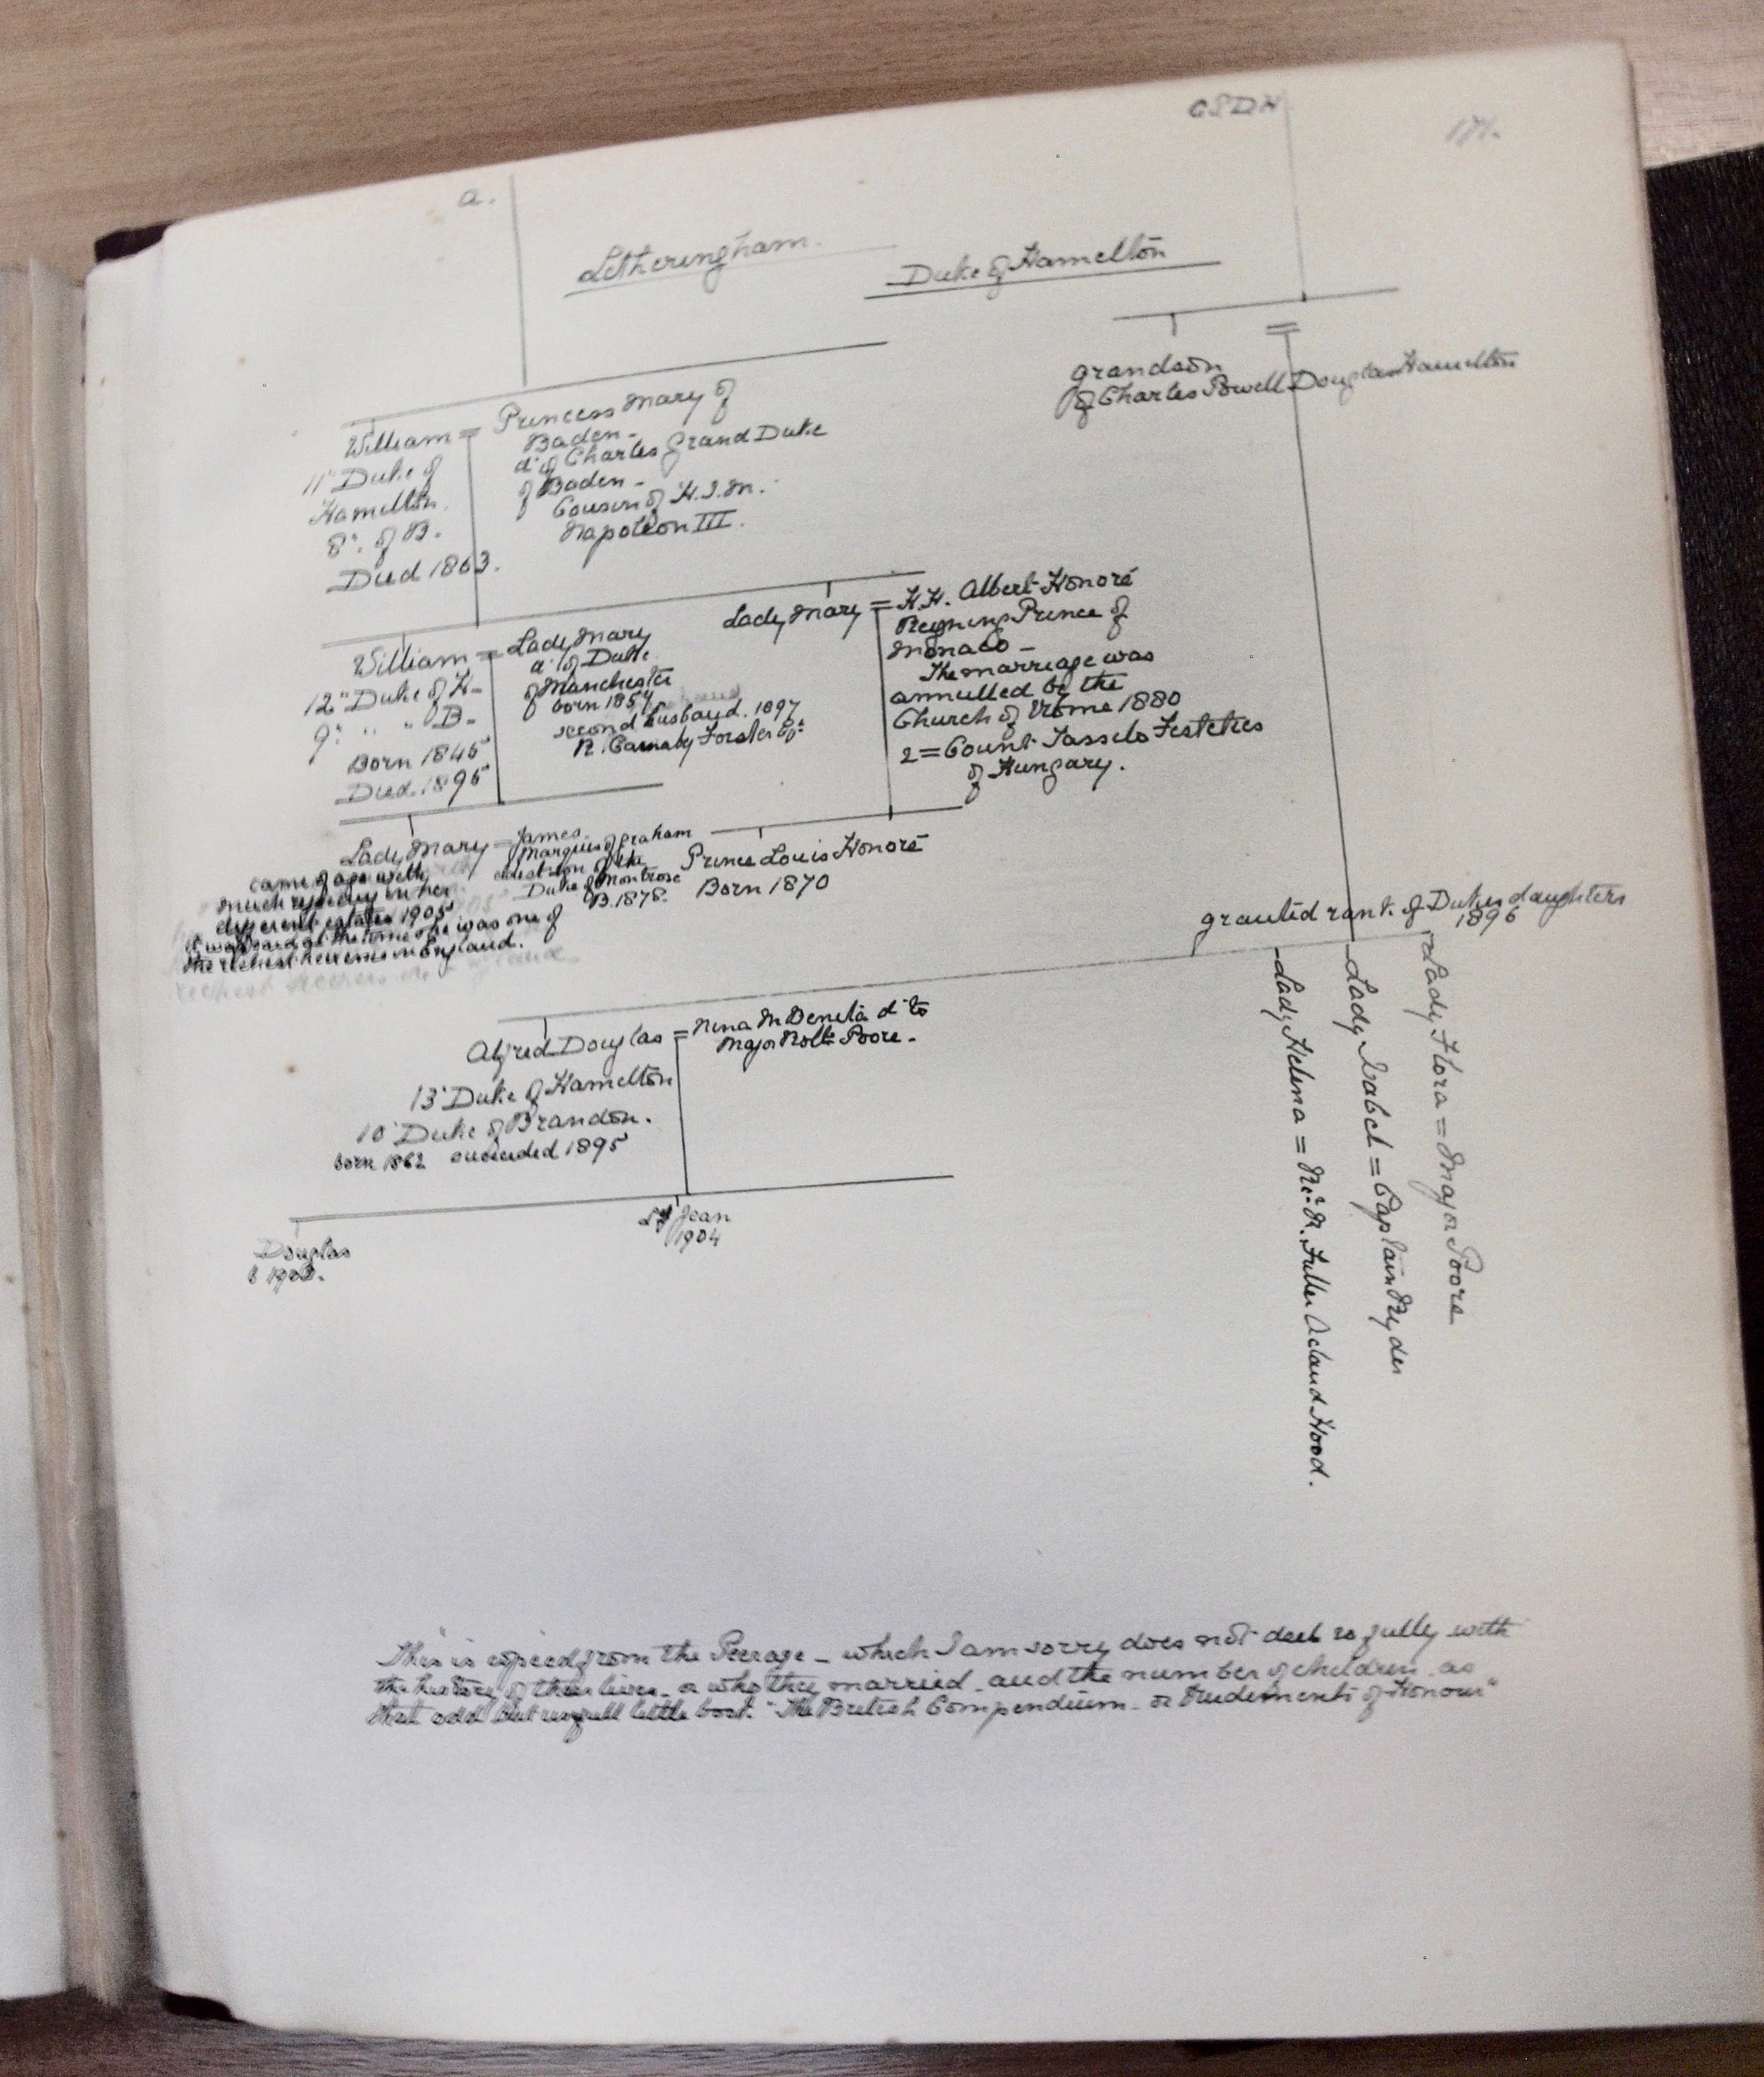 a.
Letheringham.
Duke of Hamelton
grandson
of Charles Powell Douglas Hamelton
William = Princess Mary of
Baden -
d' of Charles Grand Duke
of Baden -
Cousin of H.I.M.
Napoleon III.
11" Duke of
Hamelton.
8". of B.
Died 1863.
Lady Mary = H.H. Albert Honoré
Reigning Prince of
Monaco -
The marriage was
annulled by the
Church of Rome 1880
2 = Count Tassels Festetics
of Hungary.
William = Lady Mary
d' of Duke
of Manchester
born 1854
second husband. 1897
R. Carnaby Forster Eq:
12" Duke of H-
9" " " B-
Born 1845
Died 1895
Lady Mary = James
Marquis of Graham
eldest son of the
Duke of Montrose
B.1878.
came of age with
much rejoicing in her
different estates 1905
it was said at the time she was one of
the richest heiresses in England.
Prince Louis Honoré
Born 1870
granted rank of Dukes daughters
1896
Lady Helena = R. Fuller Acland Hood.
Lady Isabel = Captain Ryder
Lady Flora = Major Poore
Alfred Douglas = Nina M Benita d' to
Major Poore -
13" Duke of Hamelton
10' Duke of Brandon.
born 1862 succeeded 1895
Douglas
b 1903.
Ly Jean
1904
This is copied from the Peerage - which I am sorry does not deal so fully with
the history of their lives - or who they married - and the number of children - as
that odd but usefull little book. "The British Compendium - or Rudiments of Honour"